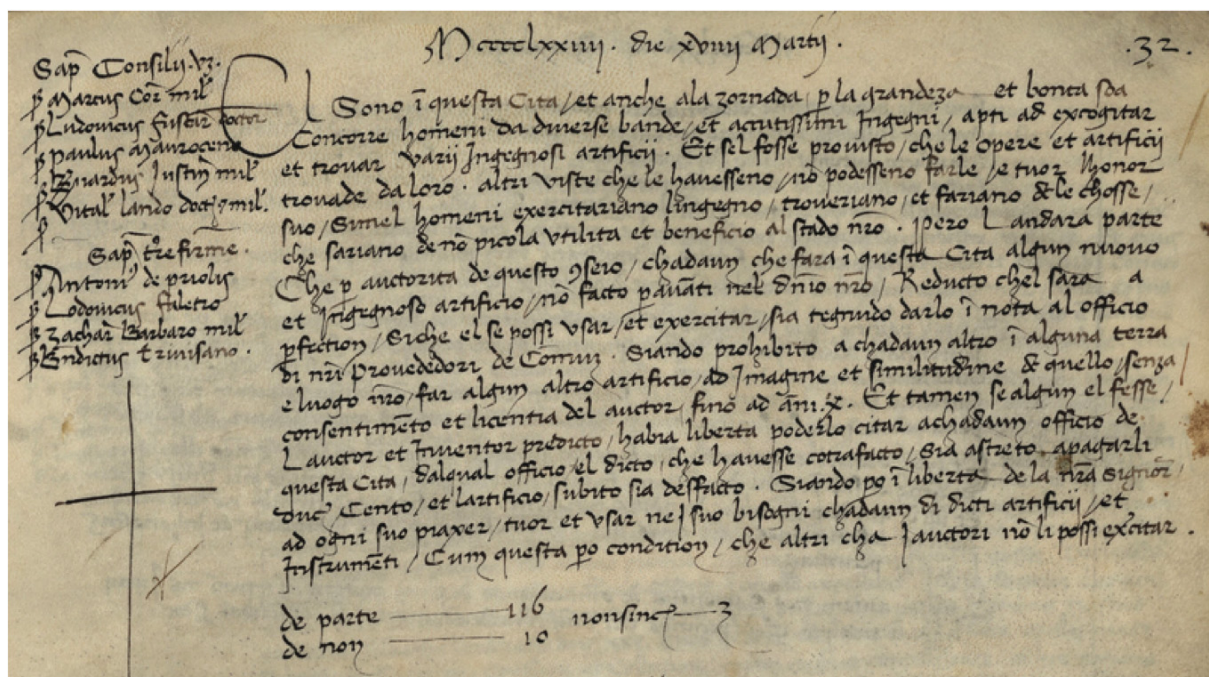 Mcccclxxiiii. die xviiii Martii.
.32.
Sap̄ Consilii. vz.
ꝑ Marcus Cor̄ mil̄
ꝑ Ludovicus fuscar̄ doctor
ꝑ Paulus Mauroceno
ꝑ Bn̄ardus Justin̄ mil̄
ꝑ Vital̄ lando doct̄ mil̄.
Sap̄ tr̄e firme.
Antoni' de priolis
Lodovicus faletro
Zachar̄ Barbaro mil̄
Bn̄dictus trivisano.
El Sono ī questa Cita, et anche ala zornada, ꝑ la grandeza et bonta soa
Concorre homeni da diverse bande, et accutissimi Ingegni, apti ad excogitar
et trovar varij Ingegnosi artificii. Et sel fosse provisto, che le opere et artificii
trovade da loro. altri viste che le havesseno, nō podesseno farle, e tuor lhonor
suo, Simel homeni exercitariano lingegno, troveriano, et fariano de le chosse,
che sariano de nō picola utilita et beneficio al stado nr̄o. Pero Landara parte
Che ꝑ auctorita de questo ↄseio, chadaun che fara ī questa Cita algun nuovo
et Ingegnoso artificio, nō facto ꝑ avāti nel dn̄io nr̄o, Reducto chel sara a
ꝑfection, Siche el se possi usar, et exercitar, sia tegnudo darlo ī nota al officio
di nr̄i Provededori de Comun. Siando prohibito a chadaun altro ī alguna terra
e luogo nr̄o, far algun altro artificio, ad Imagine et similitudine de quello, senza
consentimēto et licentia del auctor, fino ad ani. x. Et tamen se algun el fesse,
Lauctor et Inventor predicto, habia liberta poderlo citar a chadaun officio de
questa Cita, dalqual officio, el dicto, che havesse cōtrafacto, Sia astreto apagarli
duc̄ Cento, et lartificio, subito sia desfacto. Siando ꝑo ī liberta de la nr̄a Signor̄,
ad ogni suo piaxer, tuor et usar ne i suo bisogni chadaun di dicti artificii, et
Instrumēti, Cum questa ꝑo condition, che altri cha i auctori nō li possi exc̄itar.
de parte 116 nonsinc̄ 3
de non 10